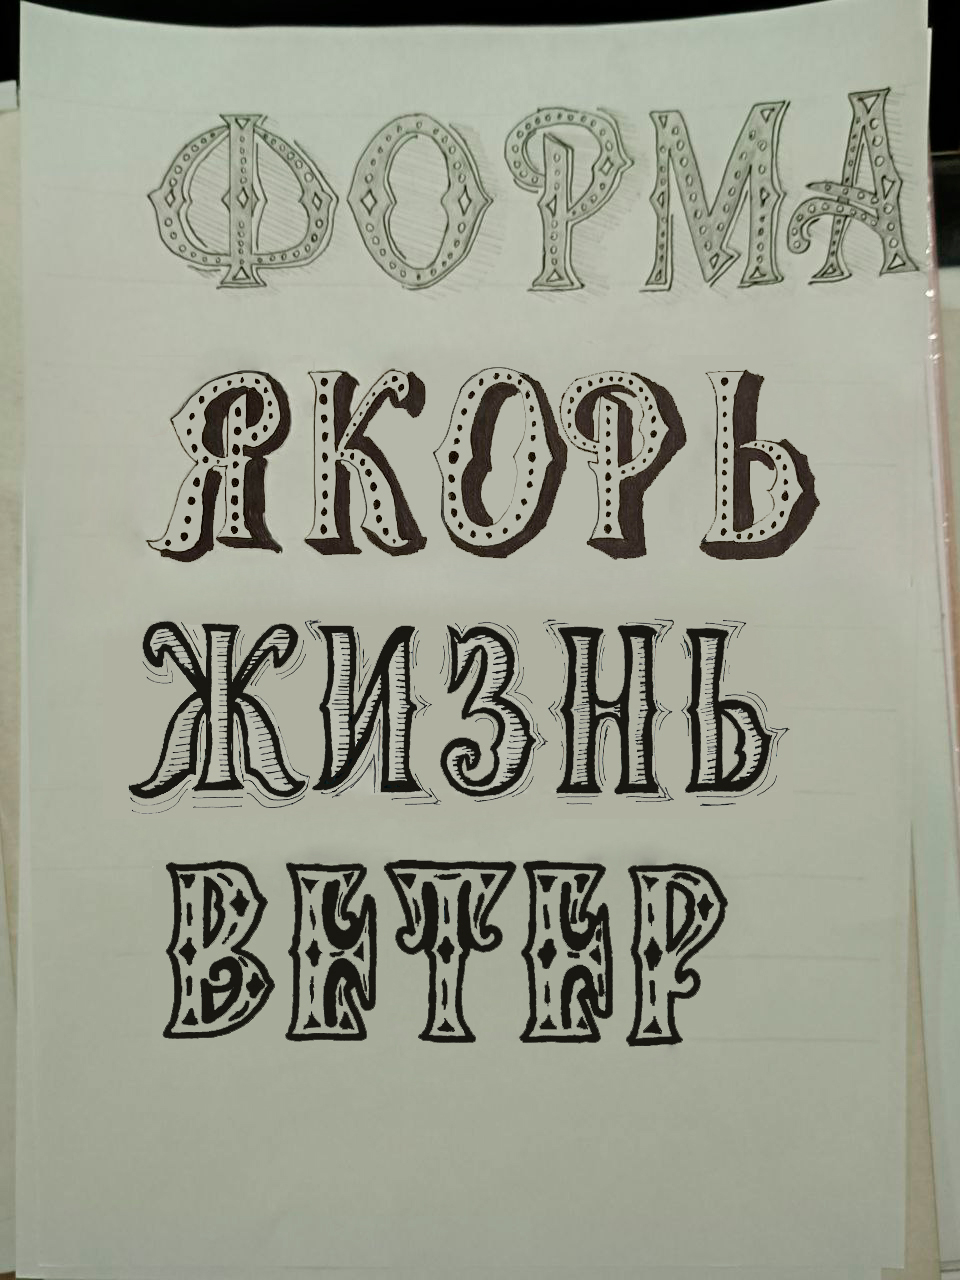 ФОРМА
ЯКОРЬ
ЖИЗНЬ
ВЕТЕР